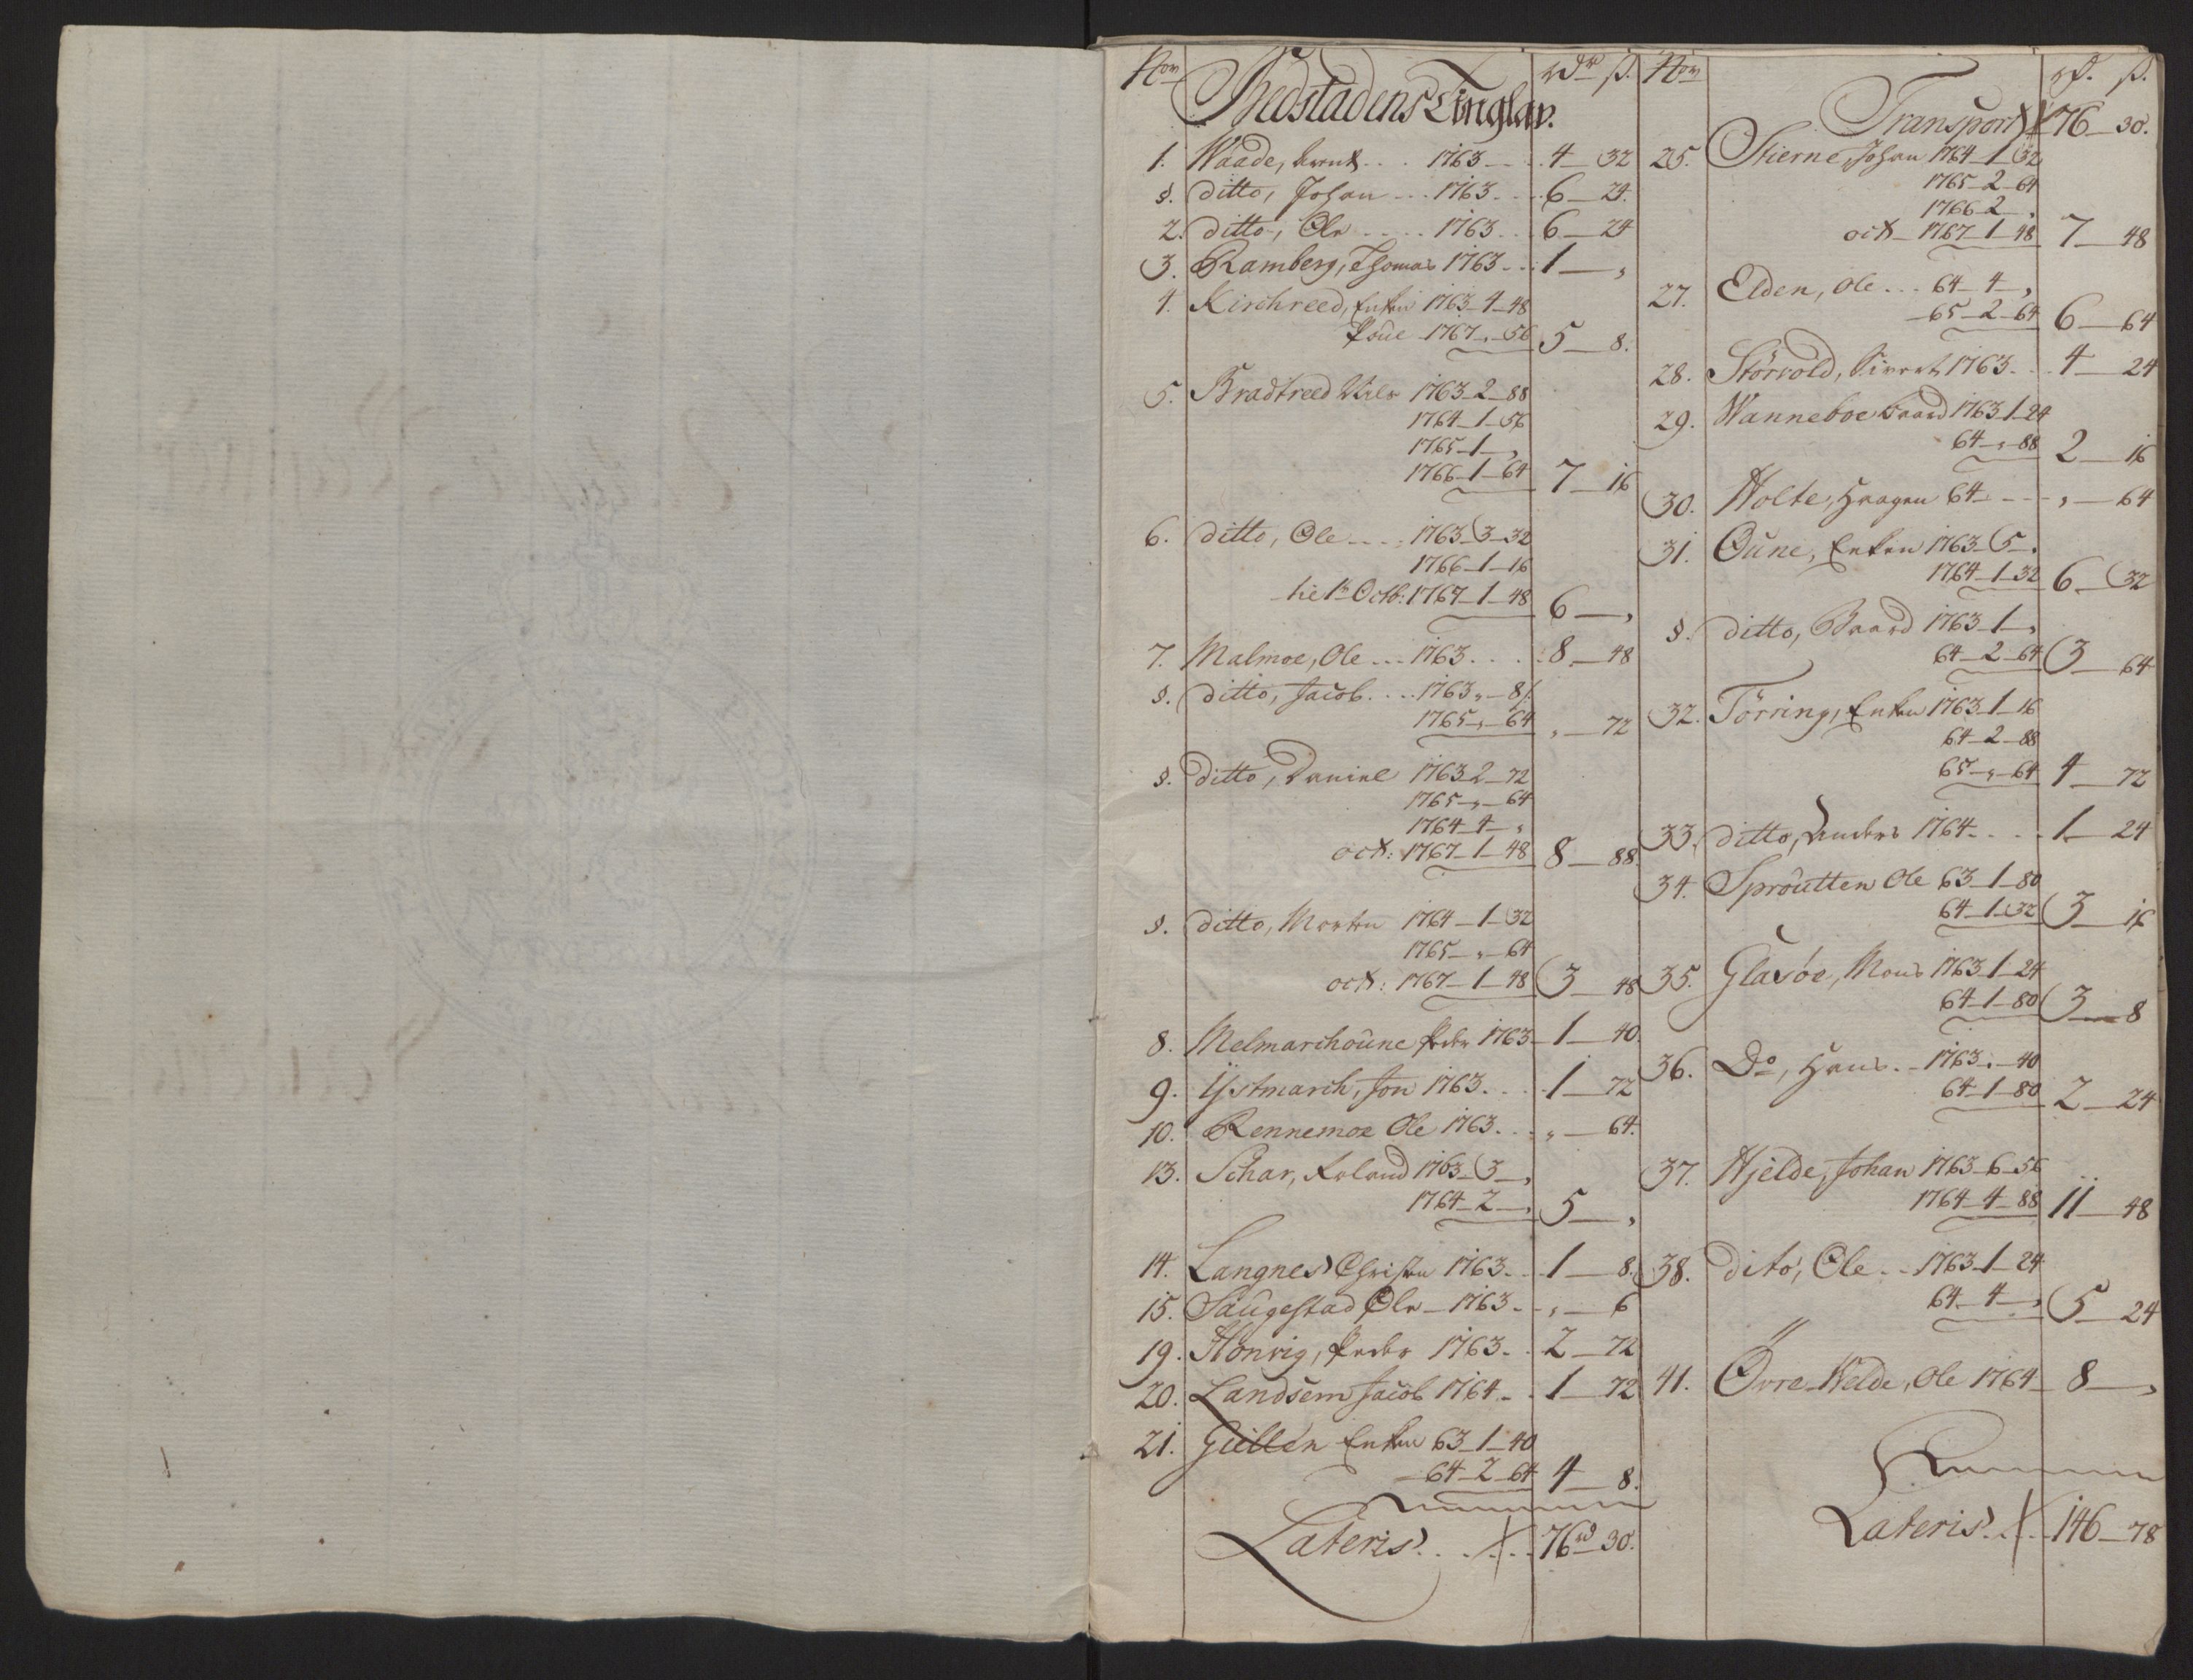 No Bedstadens Tinglav. rdr ß.
1. Waade, Arent . . . 1763 . . . 4 – 32
§. ditto, Johan . . . 1763 . . . 6 – 24.
2. ditto, Ole . . . . 1763 . . 6 – 24
3. Ramberg, Thomas 1763 . . 1 – „
4. Kirchreed, Enken 1763 – 4 – 48
1767 „ – 56 5 – 8.
5. Bradtreed Nils 1763 – 2 – 88
1764 – 1 – 56
1765 – 1 – „
1766 – 1 – 64 7 – 16
6. ditto, Ole . . . . 1763 – 3 – 32
1766 – 1 – 16
Octb: 1767 – 1 – 48 6 – „
7. Malmoe, Ole . . . 1763 . . . . 8 – 48
§. ditto, Jacob . . . . 1763 „ – 8
1765 „ – 64 „ – 72
§. ditto, Daniel 1763 2 – 72
1765 – „ – 64
1764 – 4 – „
oct: 1767 – 1 – 48 8 – 88.
§. ditto, Morten 1764 – 1 – 32
1765 – „ – 64
oct: 1767 – 1 – 48 3 – 48
8. Melmarchoune Peder 1763 – 1 – 40.
9. Ÿstmarch, Jon 1763 . . . 1 – 72
10. Rennemoe Ole 1763 . . „ – 64.
13. Schar, Erland 1763 – 3 – „
1764 – 2 – „ 5 – „
14. Langnes Christen 1763 . . 1 – 8.
15. Saugestad Ole – 1763 – „ – 6
19. Honvig, Peder 1763 . . 2 – 72
20. Landsem Jacob 1764 . . 1 – 72
21. Gullen Enken 63 – 1 – 40
64 – 2 – 64 4 – 8.
Lateris . . . . 76rd 30.
No rd. ß.
Transport 76 – 30.
25. Stierne, Johan 1764 – 1 – 32
1765 – 2 – 64
1766 – 2 – „
oct – 1767 – 1 – 48 7 – 48
27. Elden, Ole . . . 64 – 4 „
65 – 2 – 64 6 – 64
28. Störvold, Sivert 1763 . . 4 – 24
29. Wanneboe Baard 1763 – 1 – 24
64 – „ – 88 2 – 16
30. Holte, Haagen 64 – – – „ – 64
31. Oune, Enken 1763 – 5 – „
1764 – 1 – 32 6 – 32
§. ditto, Baard 1763 – 1 – „
64 – 2 – 64 3 – 64
32. Törring, Enken 1763 – 1 – 16
64 – 2 – 88
65 – „ – 64 4 – 72
33. ditto, Anders 1764 . . . . 1 – 24
34. Sproutten Ole 63 – 1 – 80
64 – 1 – 32 3 – 16
35. Glasöe, Mons 1763 – 1 – 24
64 – 1 – 80 3 – 8
36. Do, Hans . . 1763 „ – 40
64 – 1 – 80 2 – 24
37. Hjelde, Johan 1763 – 6 – 56
1764 – 4 – 88 11 – 48
38. dito, Ole . . 1763 – 1 – 24
64 – 4 – „ 5 – 24
41. Övre Welde, Ole 1764 – 8 – „
Lateris . . . 146 – 78